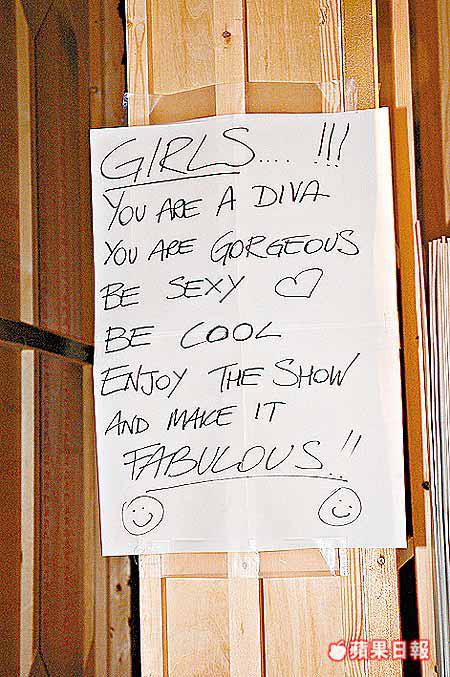 GIRLS.... !!!
YOU ARE A DIVA
YOU ARE GORGEOUS
BE SEXY ♡
BE COOL
ENJOY THE SHOW
AND MAKE IT
FABULOUS..!!
蘋果日報